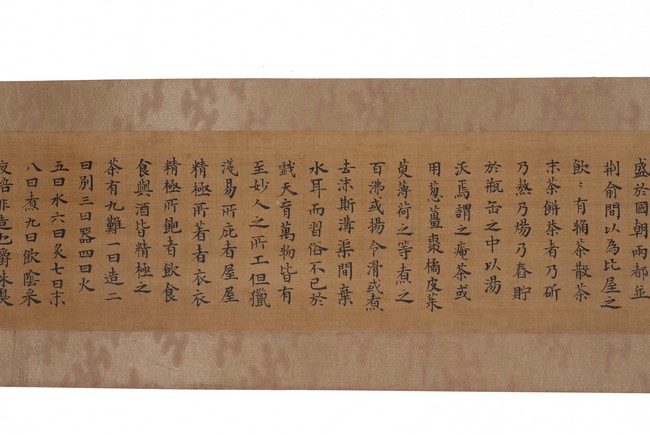 盛於國朝兩都並
荆俞間以為比屋之
飲飲有觕茶散茶
末茶餅茶者乃斫
乃熬乃煬乃舂貯
於瓶缶之中以湯
沃焉謂之痷茶或
用葱薑棗橘皮茱
萸薄荷之等煮之
百沸或揚令滑或煮
去沫斯溝渠間棄
水耳而習俗不已於
戲天育萬物皆有
至妙人之所工但獵
淺易所庇者屋屋
精極所著者衣衣
精極所飽者飲食
食與酒皆精極之
茶有九難一曰造二
曰別三曰器四曰火
五曰水六曰炙七曰末
八曰煮九曰飲陰采
夜焙非造也嚼味嗅